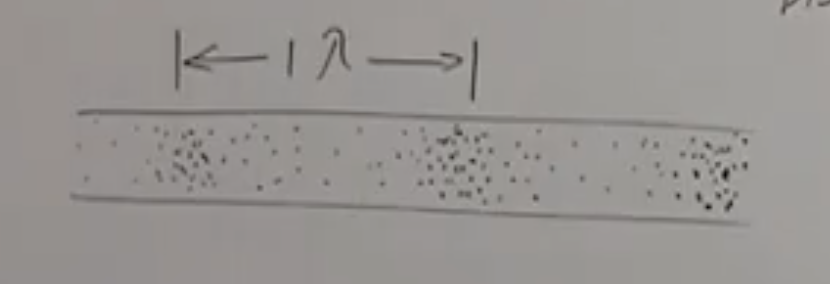 |← 1 λ →|